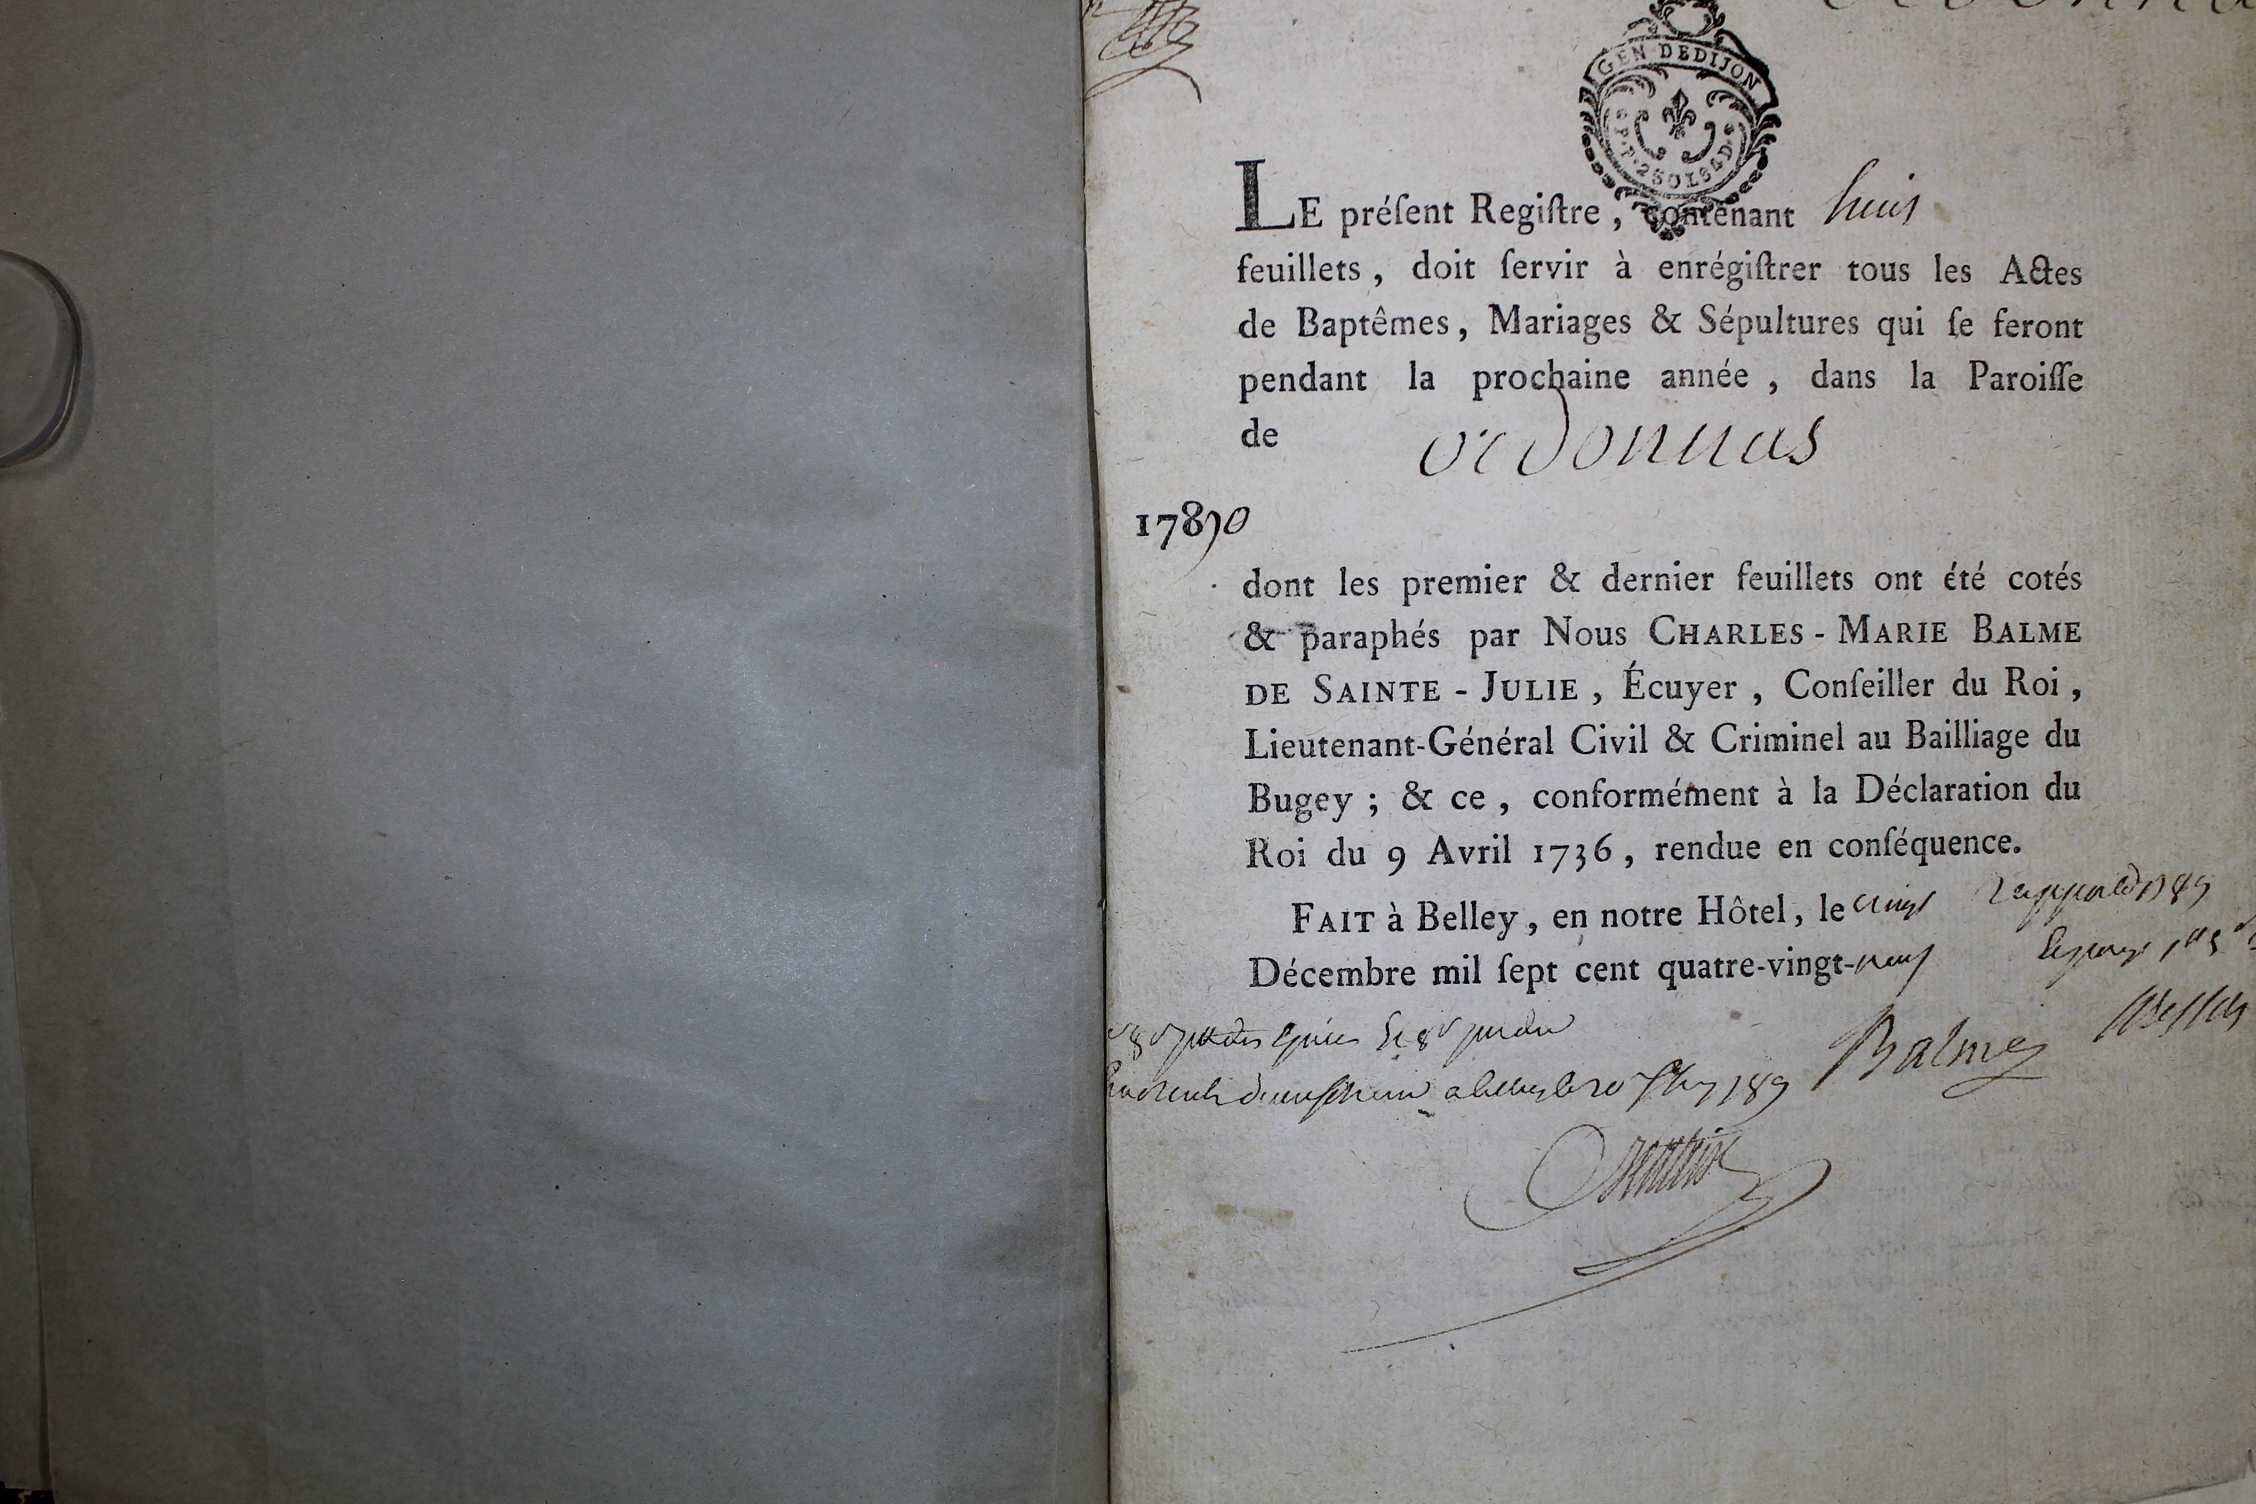 GEN DEDIJON
P.P. 2 SOLS 6 D.
LE préſent Regiſtre, contenant huit
feuillets, doit ſervir à enrégiſtrer tous les Actes
de Baptêmes, Mariages & Sépultures qui ſe feront
pendant la prochaine année, dans la Paroiſſe
de ordonnas
17890
dont les premier & dernier feuillets ont été cotés
& paraphés par Nous CHARLES-MARIE BALME
DE SAINTE-JULIE, Écuyer, Conſeiller du Roi,
Lieutenant-Général Civil & Criminel au Bailliage du
Bugey; & ce, conformément à la Déclaration du
Roi du 9 Avril 1736, rendue en conſéquence.
FAIT à Belley, en notre Hôtel, le vingt
Décembre mil ſept cent quatre-vingt-neuf
Balme